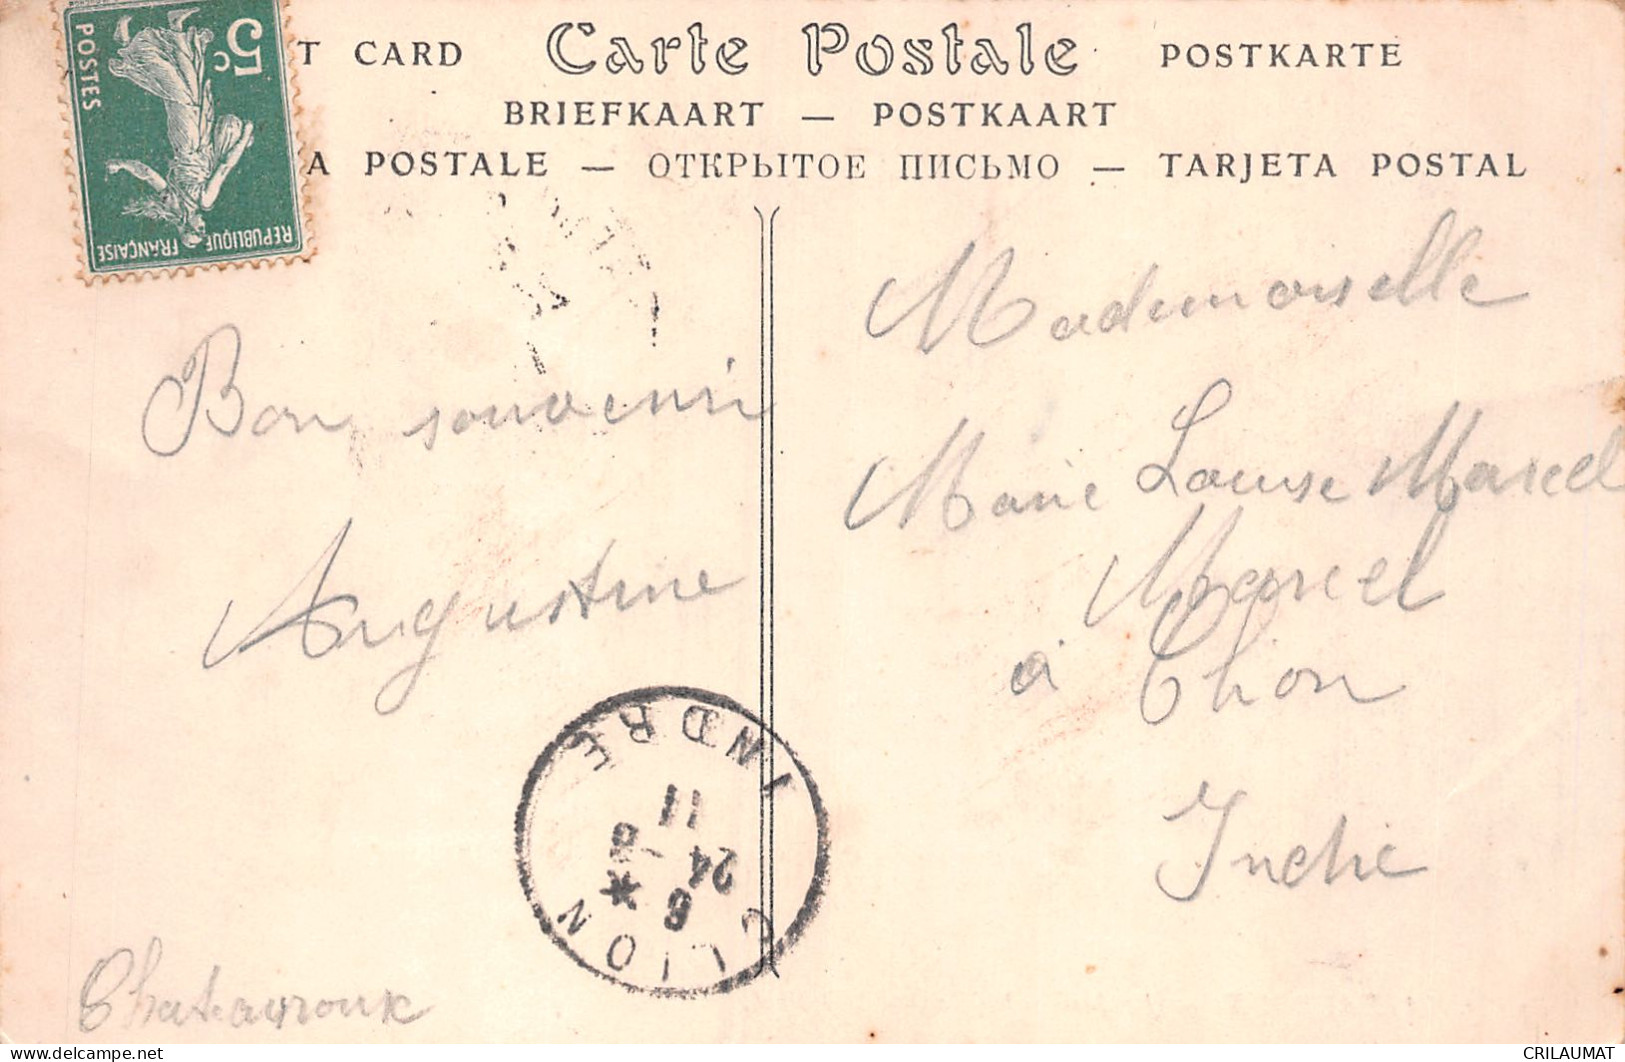 T CARD Carte Postale POSTKARTE
BRIEFKAART — POSTKAART
A POSTALE — ОТКРЫТОЕ ПИСЬМО — TARJETA POSTAL
5c
POSTES
REPUBLIQUE FRANÇAISE
Bon souvenir
Augustine
Chateauroux
Mademoiselle
Marie Louise Marcel
Marcel
à Clion
Indre
CLION
6 *
24 - 8
11
INDRE
CRILAUMAT